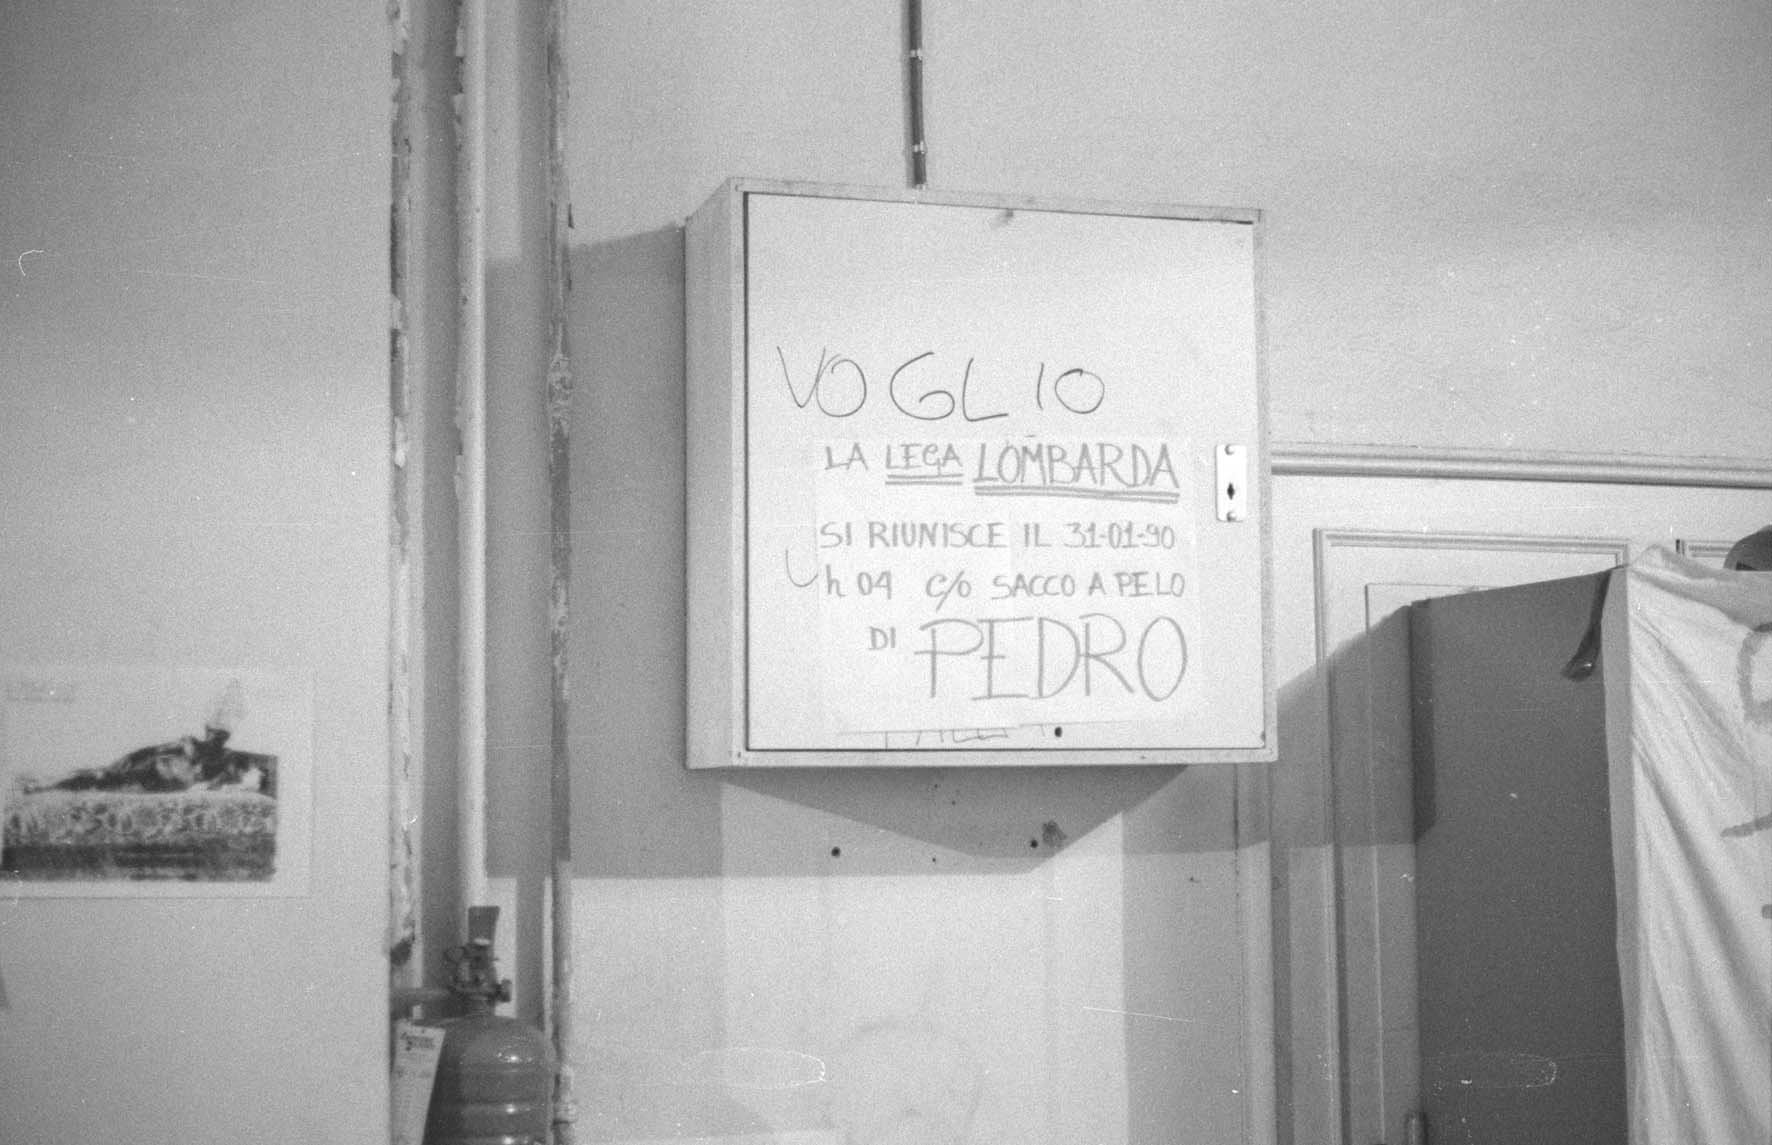 VOGLIO
LA LEGA LOMBARDA
SI RIUNISCE IL 31-01-90
h 04 c/o SACCO A PELO
DI PEDRO